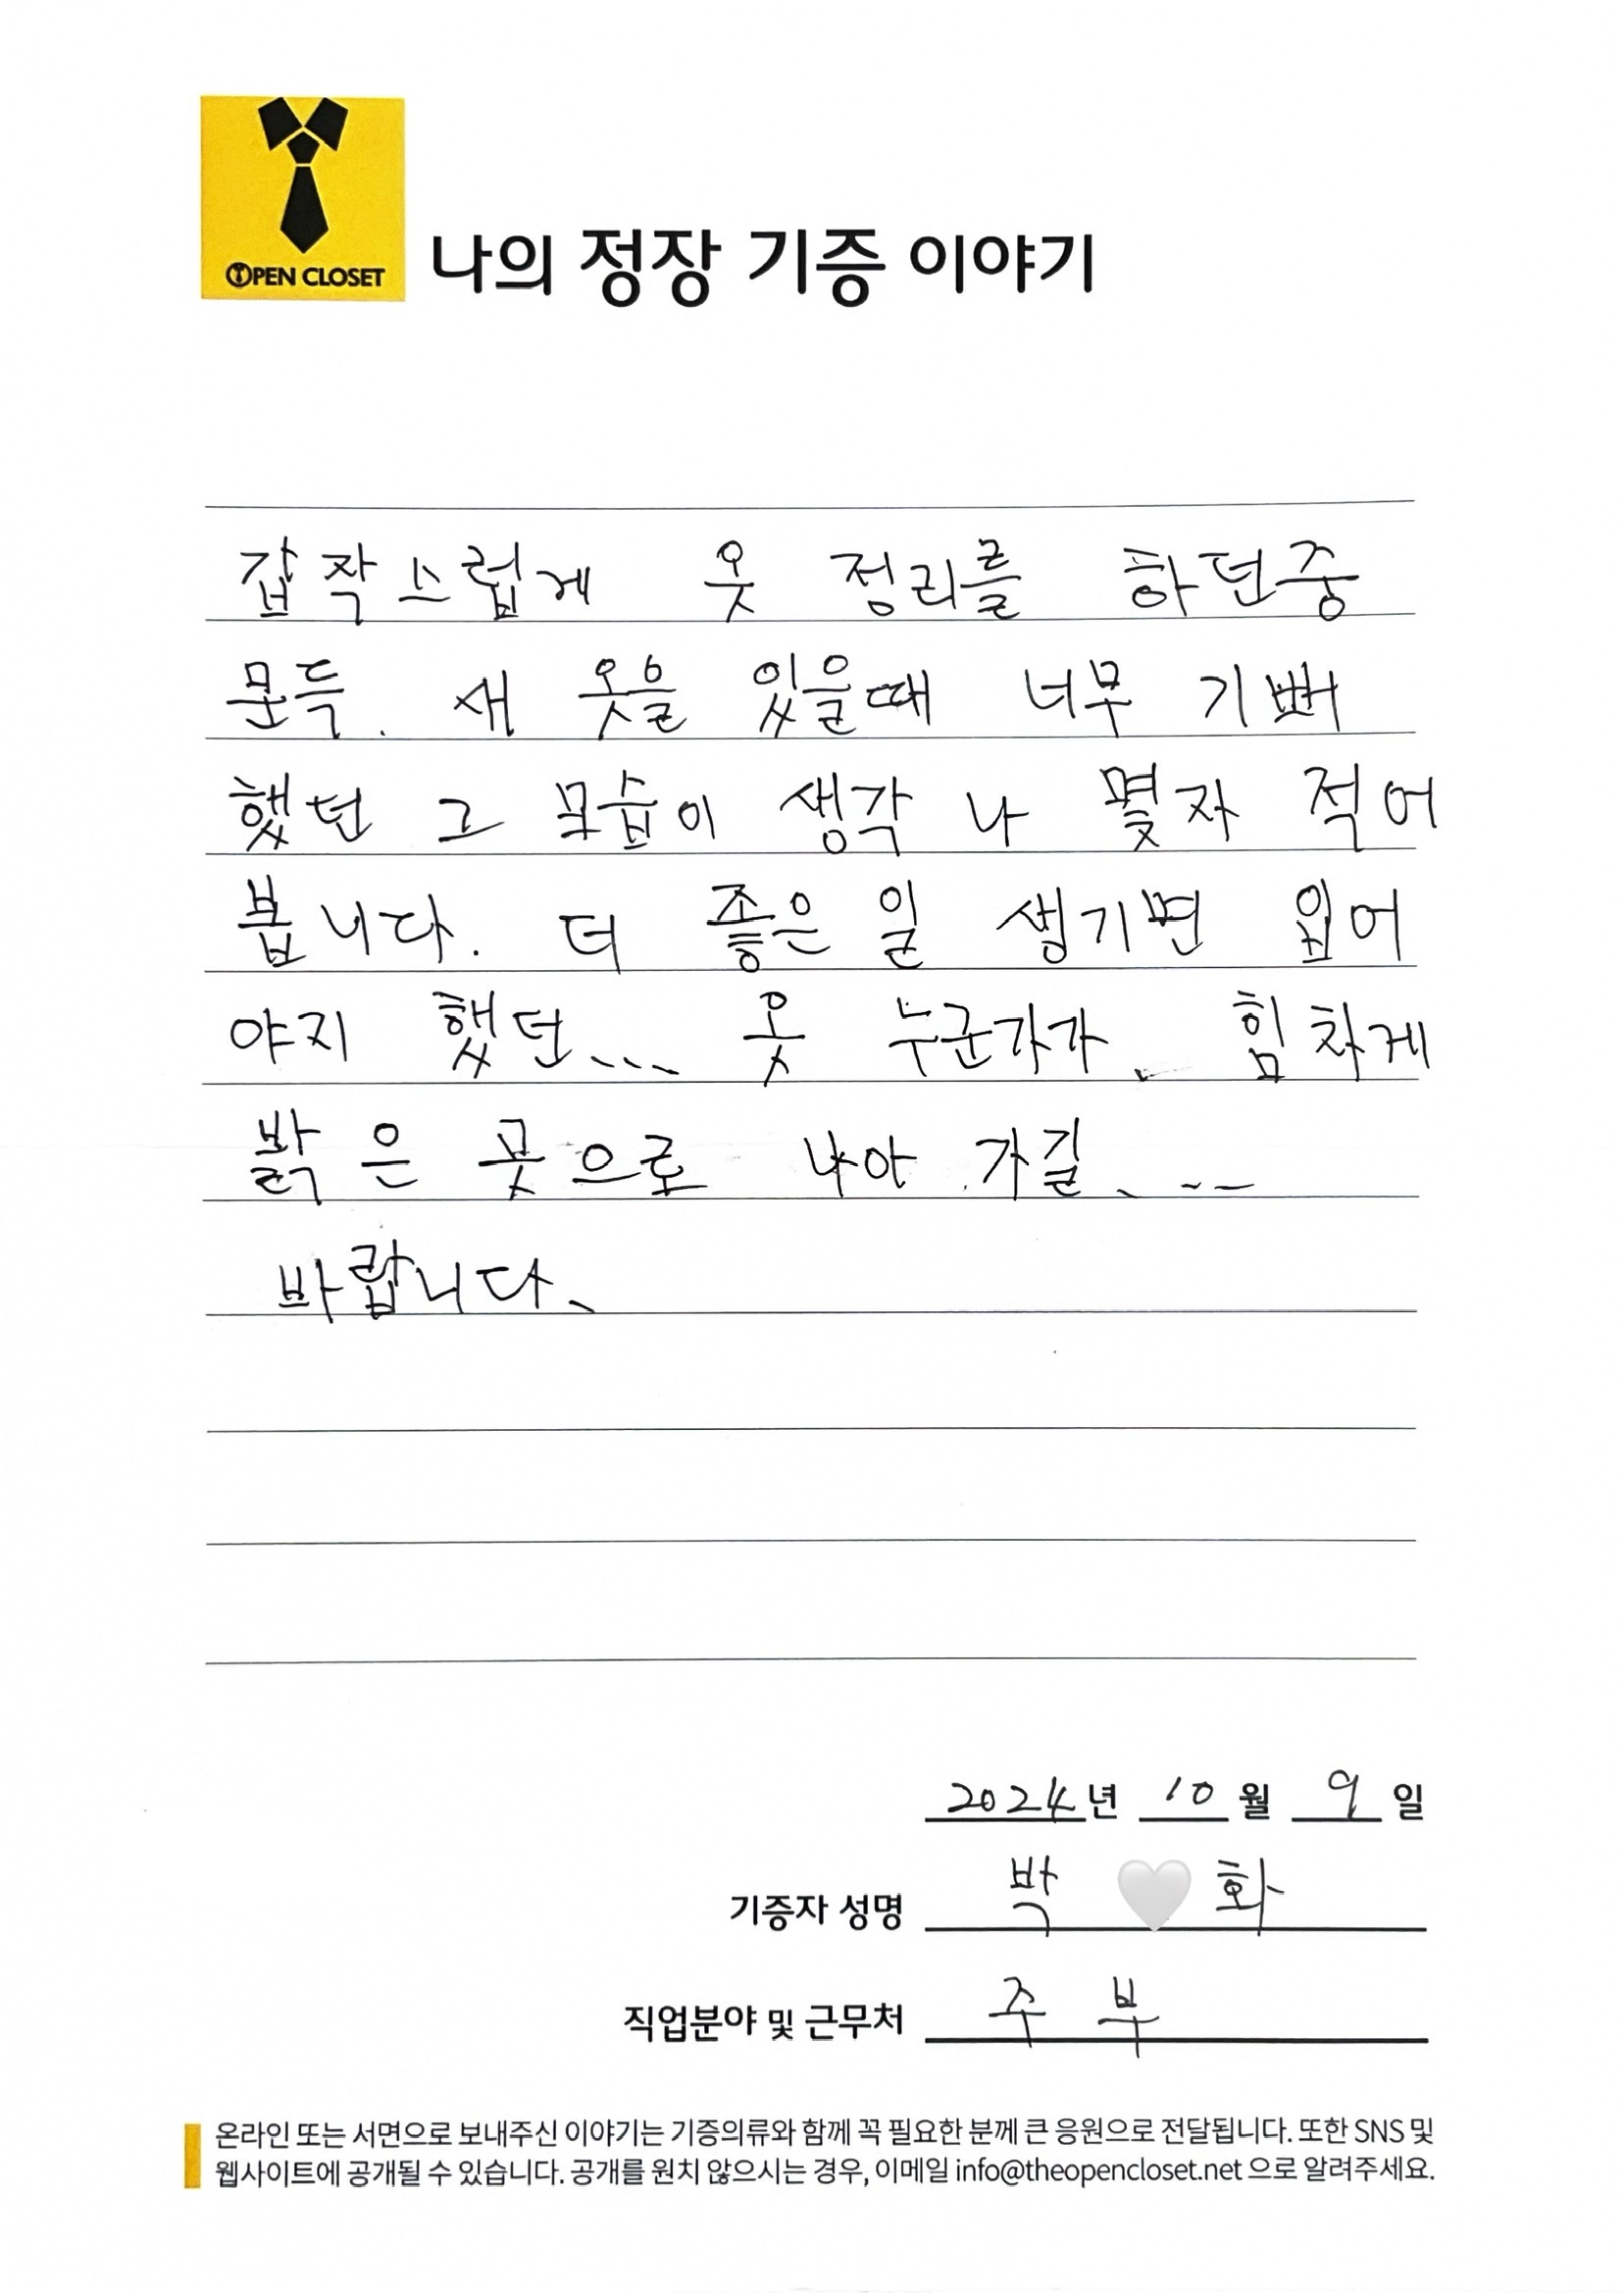 OPEN CLOSET
나의 정장 기증 이야기
갑작스럽게 옷 정리를 하던중
문득. 새 옷을 있을때 너무 기뻐
했던 그 모습이 생각 나 몇자 적어
봅니다. 더 좋은 일 생기면 입어
야지 했던... 옷 누군가가. 힘차게
밝은 곳으로 나아 가길....
바랍니다.
2024년 10월 9일
기증자 성명 박 🤍 화
직업분야 및 근무처 주 부
온라인 또는 서면으로 보내주신 이야기는 기증의류와 함께 꼭 필요한 분께 큰 응원으로 전달됩니다. 또한 SNS 및
웹사이트에 공개될 수 있습니다. 공개를 원치 않으시는 경우, 이메일 info@theopencloset.net 으로 알려주세요.